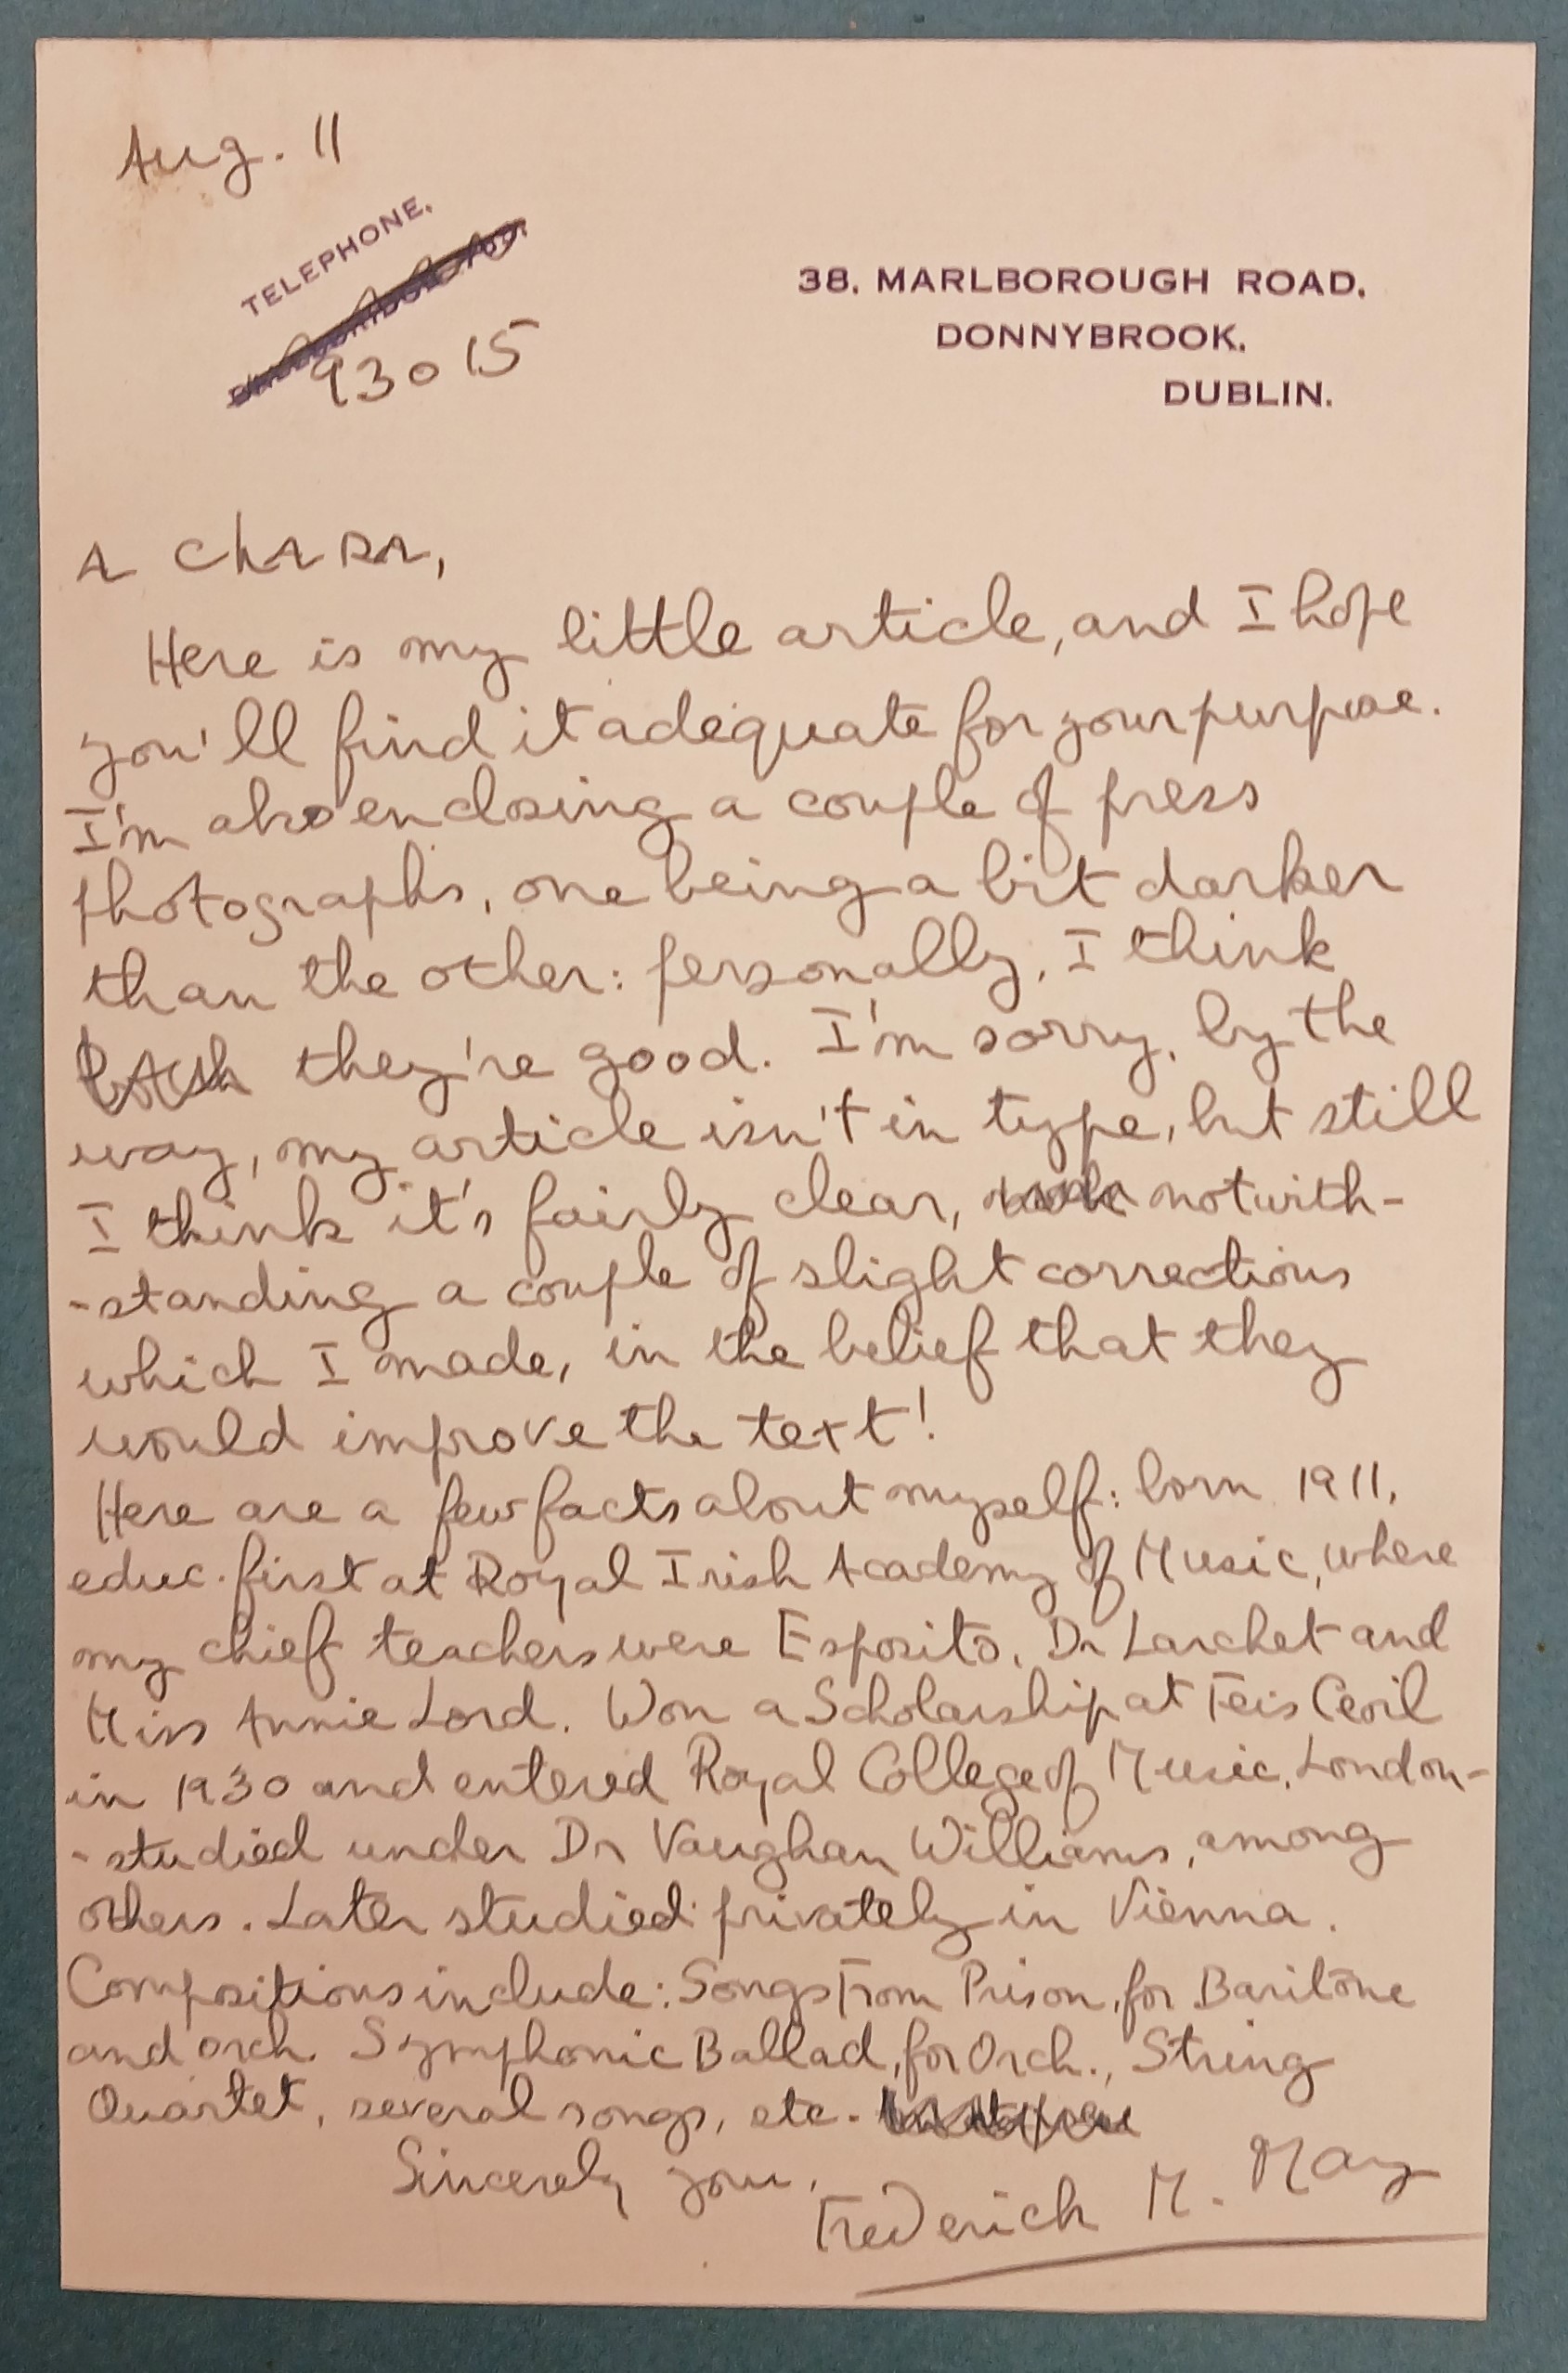 Aug. 11
TELEPHONE.
93015
38. MARLBOROUGH ROAD.
DONNYBROOK.
DUBLIN.
A chara,
Here is my little article, and I hope
you'll find it adequate for your purpose.
I'm also enclosing a couple of press
photographs, one being a bit darker
than the other: personally, I think
they're good. I'm sorry, by the
way, my article isn't in type, but still
I think it's fairly clear, notwith-
-standing a couple of slight corrections
which I made, in the belief that they
would improve the text!
Here are a few facts about myself: born 1911,
educ. first at Royal Irish Academy of Music, where
my chief teachers were Esposito, Dr Larchet and
Miss Annie Lord. Won a Scholarship at Feis Ceoil
in 1930 and entered Royal College of Music, London-
-studied under Dr Vaughan Williams, among
others. Later studied privately in Vienna.
Compositions include: Songs From Prison, for Baritone
and orch. Symphonic Ballad, for Orch., String
Quartet, several songs, etc.
Sincerely yours,
Frederick M. May